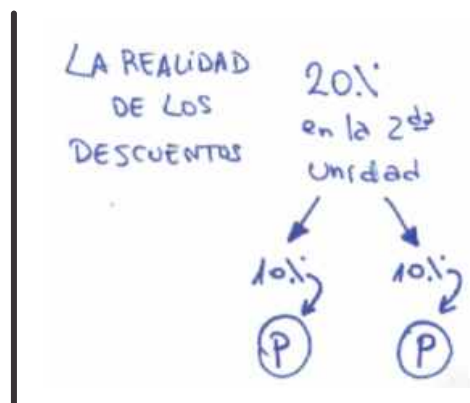 LA REALIDAD
DE LOS
DESCUENTOS
20%
en la 2da
unidad
10% 10%
P P